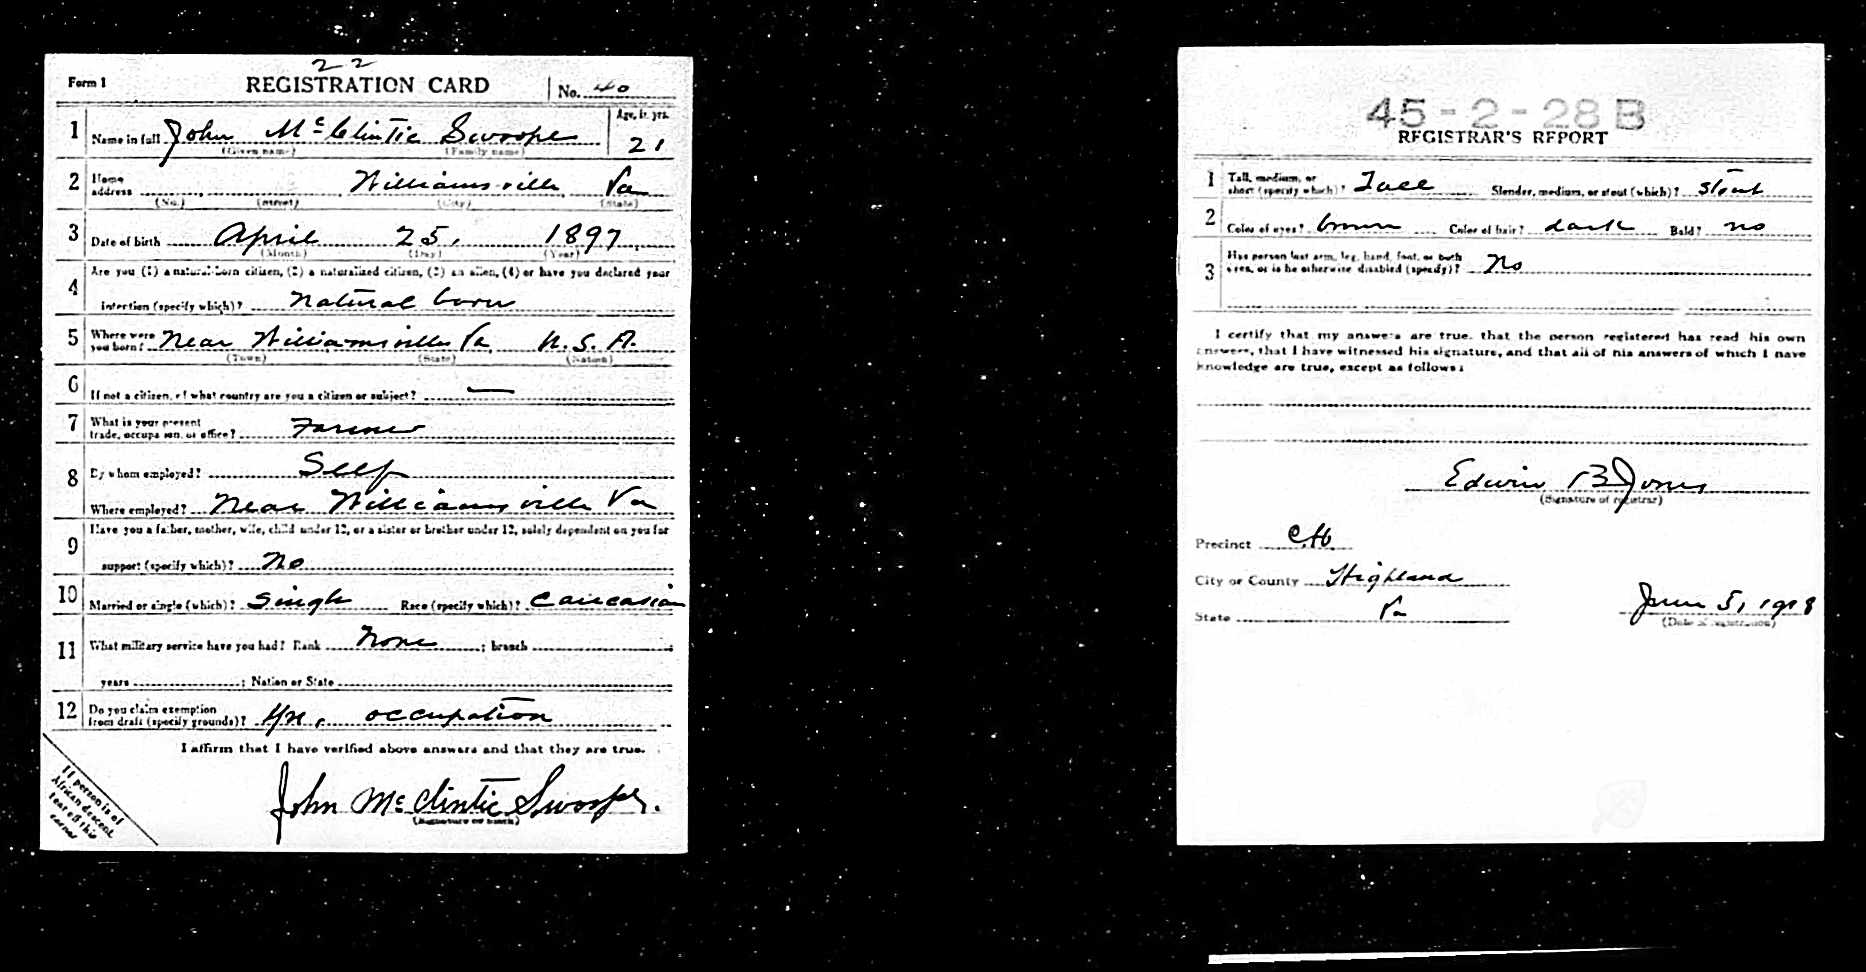 22
Form 1 REGISTRATION CARD No. 40
1 Name in full John McClintic Swoope Age, in yrs. 21
(Given name) (Family name)
2 Home address Williamsville, Va
(No.) (Street) (City) (State)
3 Date of birth April 25, 1897
(Month) (Day) (Year)
Are you (1) a natural-born citizen, (2) a naturalized citizen, (3) an alien, (4) or have you declared your
4 intention (specify which)? Natural born
5 Where were you born? Near Williamsville Va U.S.A.
(Town) (State) (Nation)
6 If not a citizen, of what country are you a citizen or subject? —
7 What is your present trade, occupation, or office? Farmer
8 By whom employed? Self
Where employed? Near Williamsville Va
Have you a father, mother, wife, child under 12, or a sister or brother under 12, solely dependent on you for
9 support (specify which)? No
10 Married or single (which)? Single Race (specify which)? Caucasian
11 What military service have you had? Rank None ; branch ;
years ; Nation or State
12 Do you claim exemption from draft (specify grounds)? occupation
I affirm that I have verified above answers and that they are true.
John McClintic Swoope.
(Signature or mark)
If person is of
African descent,
tear off this
corner
45-2-28 B
REGISTRAR'S REPORT
1 Tall, medium, or short (specify which)? Tall Slender, medium, or stout (which)? Stout
2 Color of eyes? brown Color of hair? dark Bald? no
3 Has person lost arm, leg, hand, foot, or both eyes, or is he otherwise disabled (specify)? No
I certify that my answers are true, that the person registered has read his own
answers, that I have witnessed his signature, and that all of his answers of which I have
knowledge are true, except as follows:
Edwin B Jones
(Signature of registrar)
Precinct CH
City or County Highland
State Va
June 5, 1918
(Date of registration)